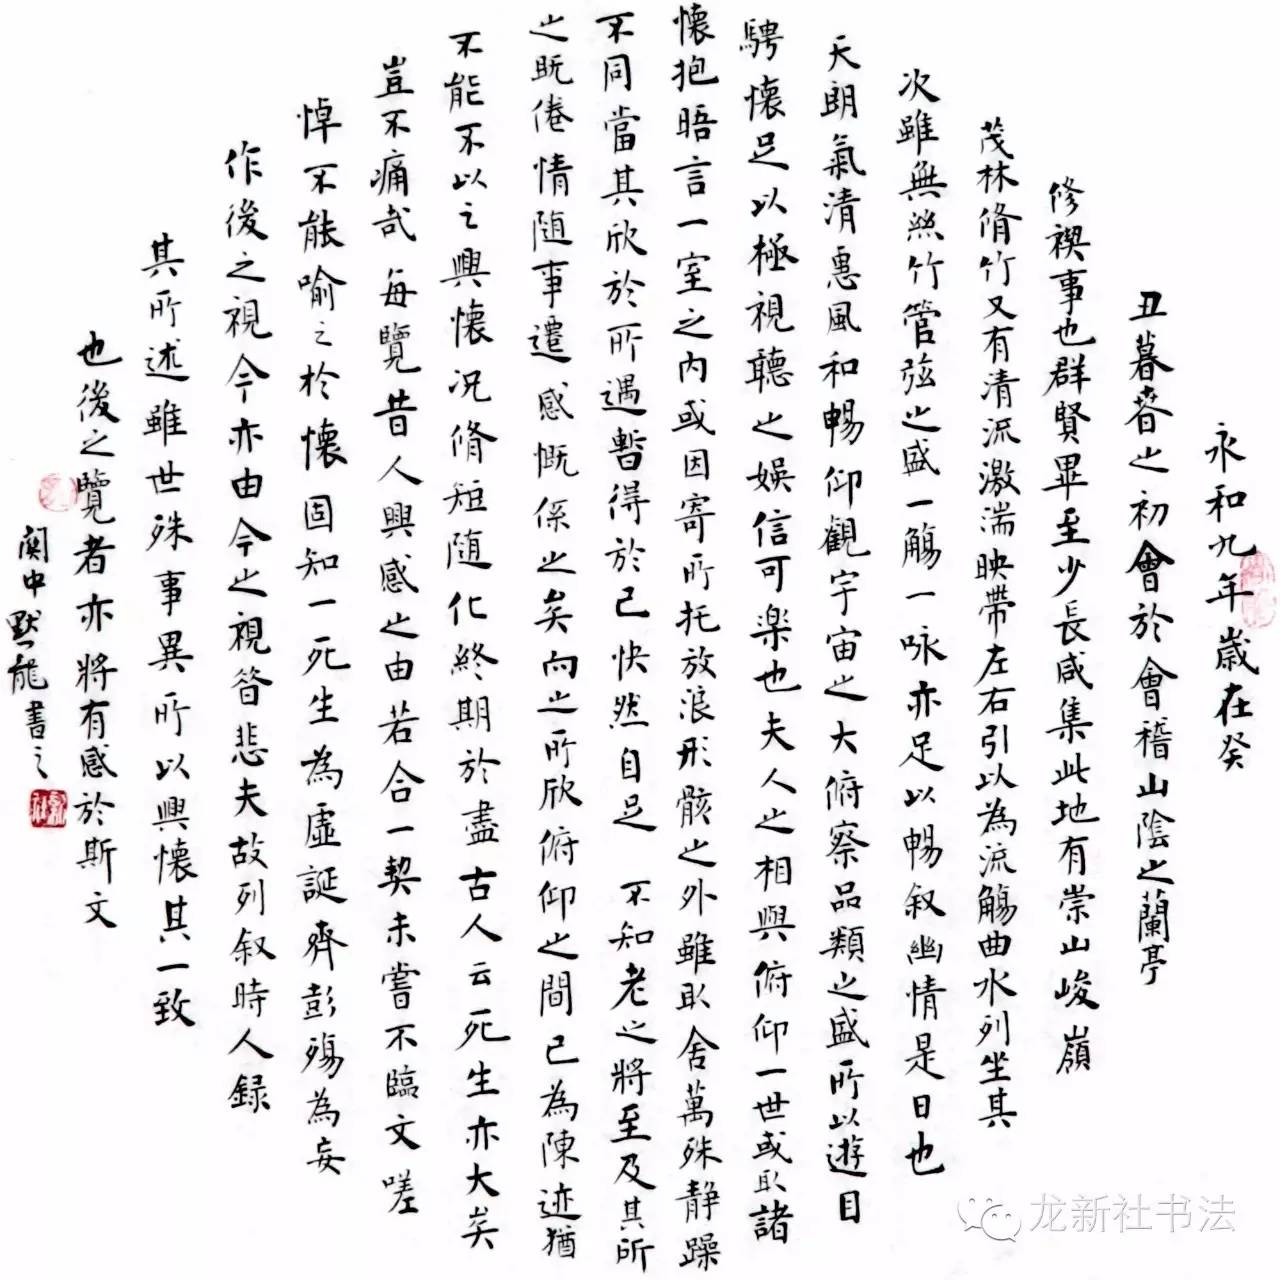 永和九年歲在癸
丑暮春之初會於會稽山陰之蘭亭
修禊事也群賢畢至少長咸集此地有崇山峻嶺
茂林脩竹又有清流激湍映帶左右引以為流觴曲水列坐其
次雖無絲竹管弦之盛一觴一咏亦足以暢叙幽情是日也
天朗氣清惠風和暢仰觀宇宙之大俯察品類之盛所以遊目
騁懷足以極視聽之娛信可楽也夫人之相與俯仰一世或取諸
懷抱晤言一室之内或因寄所托放浪形骸之外雖取舍萬殊静躁
不同當其欣於所遇暫得於己快然自足不知老之將至及其所
之既倦情随事遷感慨係之矣向之所欣俯仰之間已為陳迹猶
不能不以之興懷况脩短随化終期於盡古人云死生亦大矣
豈不痛哉每覽昔人興感之由若合一契未嘗不臨文嗟
悼不能喻之於懷固知一死生為虛誕齊彭殤為妄
作後之視今亦由今之視昔悲夫故列叙時人録
其所述雖世殊事異所以興懷其一致
也後之覽者亦將有感於斯文
關中默龍書之
龙新社书法